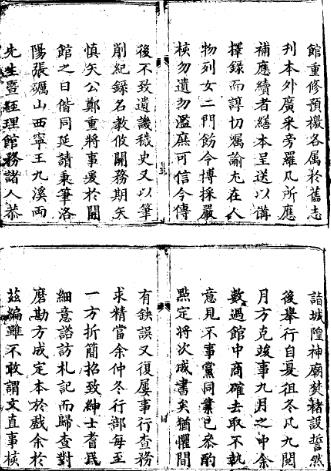 館重修預檄各属於舊志
刊本外廣采芳羅凡所應
補應續者繕本呈送以備
擇録而諄切屬諭尤在人
物列女二門飭令摶採嚴
核勿遺勿濫庶可信今傳
後不致遺譏穢史又以筆
削紀録名教攸關務期矢
慎矢公鄭重將事爰於開
館之日偕同延請秉筆洛
陽張礪山西寧王九溪兩
先生曁經理館務諸人恭
詣城隍神廟焚諸設誓然
後舉行自夏徂冬凡九閱
月方克竣事九月之中余
數過館中商確去取不執
意見不事黨同業已叅酌
㸃定將次成書矣猶懼間
有鈌誤又復屢事行查務
求精當余仲冬行部每至
一方折簡招致紳士耆民
細意諮訪札記而歸查對
磨勘方成定本於戲余於
茲編雖不敢謂文直事核